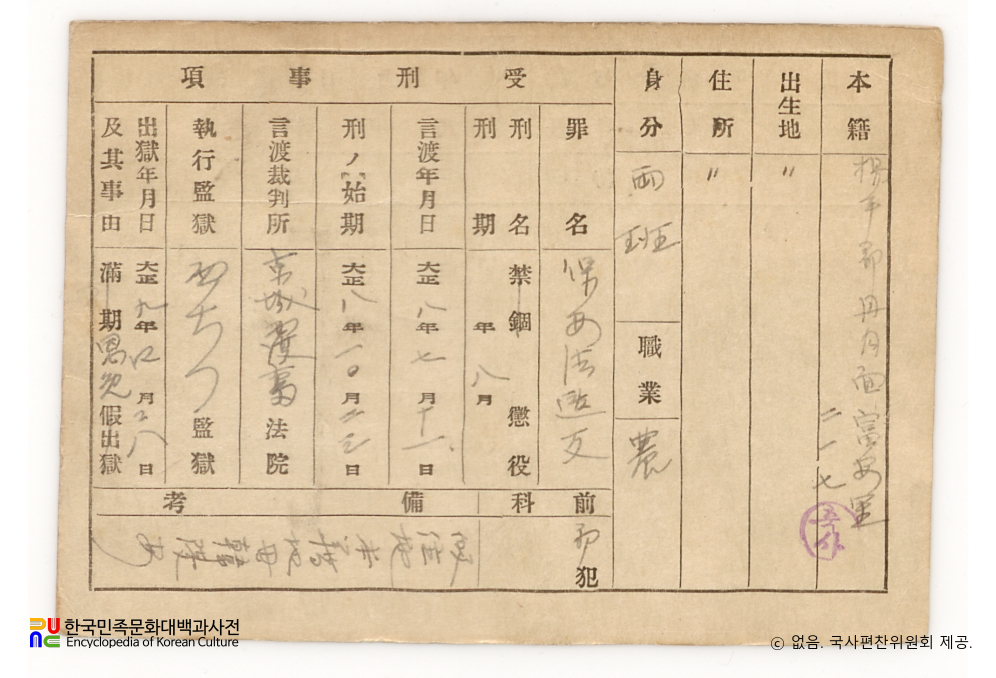 本籍 楊平郡丹月面富安里
二一七
出生地 〃
住所 〃
身分 両班
職業 農
受刑事項
罪名 保安法違反
刑名 禁錮 懲役
刑期 年八月
言渡年月日 大正八年七月十一日
刑ノ始期 大正八年一〇月二三日
言渡裁判所 京城覆審法院
執行監獄 監獄
出獄年月日及其事由 大正九年四月二八日
満期 恩赦 假出獄
前科 初犯
備考
한국민족문화대백과사전
Encyclopedia of Korean Culture
ⓒ 없음. 국사편찬위원회 제공.